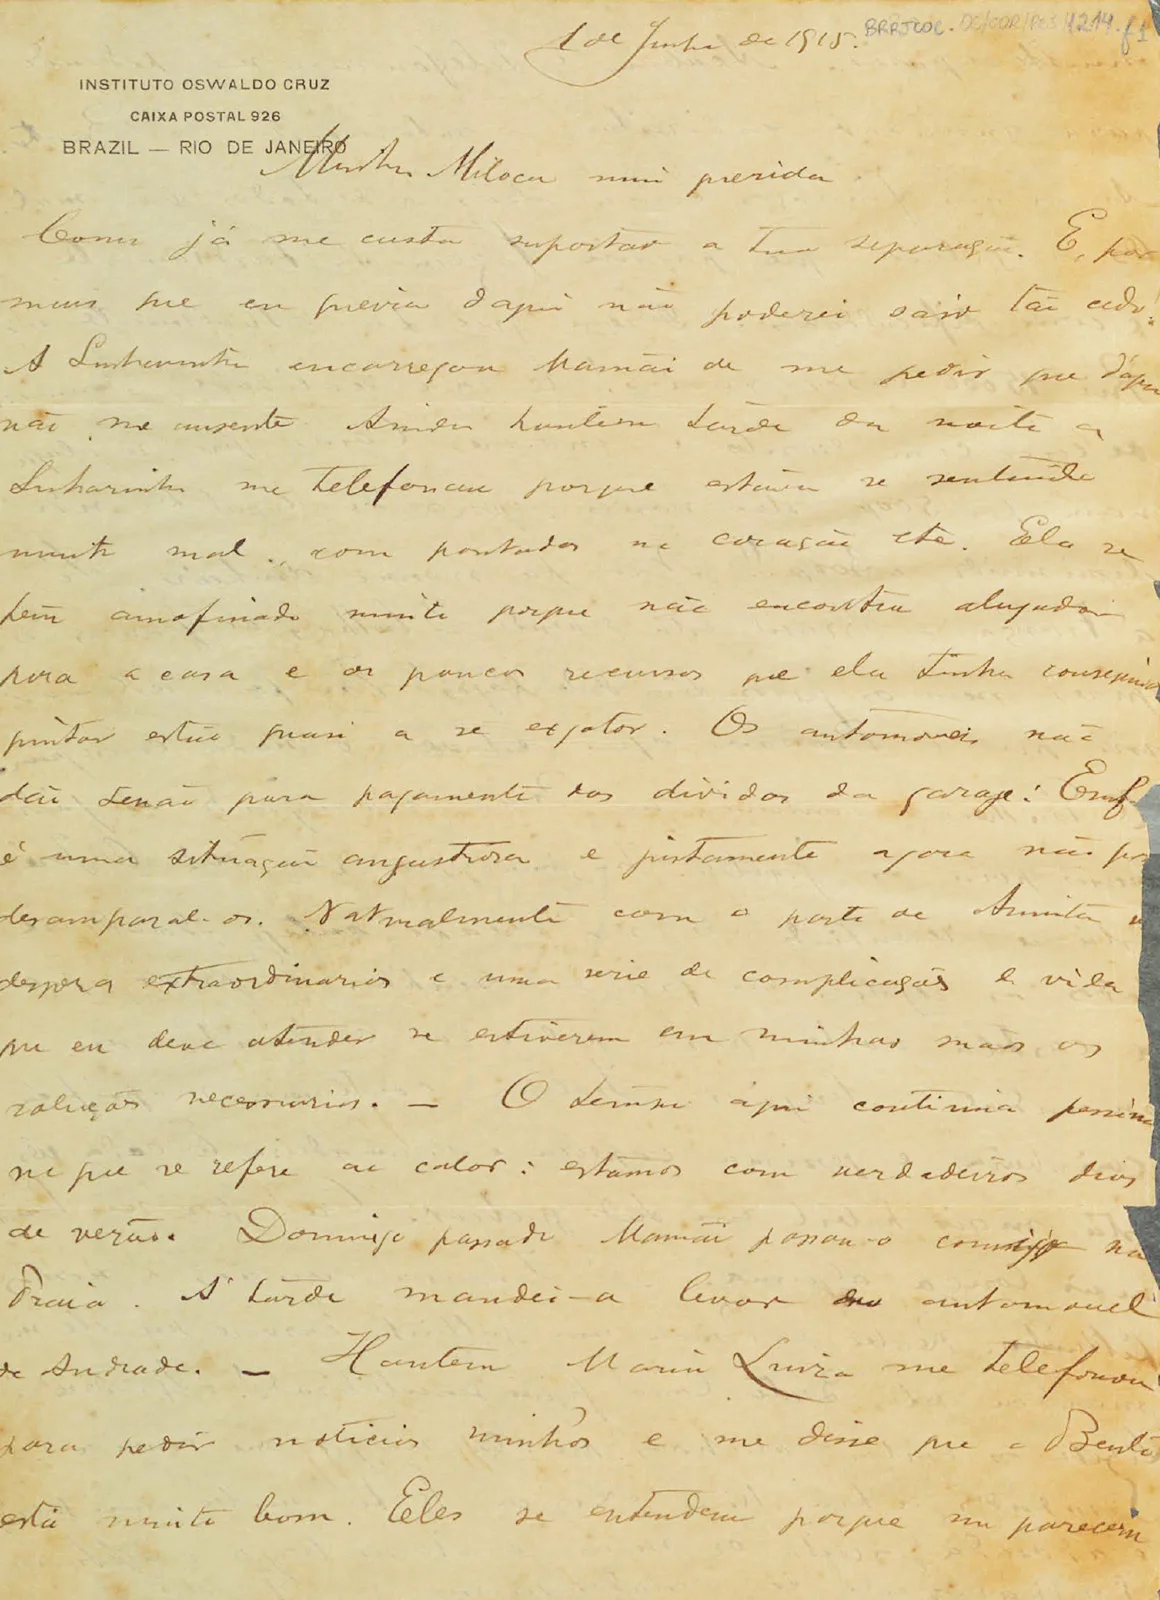 1 de Junho de 1915.
BRRJCOC. DC/COR/PES/1214. f1
INSTITUTO OSWALDO CRUZ
CAIXA POSTAL 926
BRAZIL — RIO DE JANEIRO
Minha Miloca mui querida
Como já me custa suportar a tua separação. E, por
mais que eu queria daqui não poderei sair tão cedo:
A encarregou Mamãi de me pedir que d'aqui
não me ausente Ainda hontem tarde da noite a
me telefonou porque estava se sentindo
muito mal, com pontadas no coração etc. Ela se
tem amofinado muito porque não encontra alugador
para a casa e os poucos recursos que ela tinha conseguido
juntar estão quasi a se exgotar. Os automoveis não
dão senão para pagamento das dividas da garage! Enfim
é uma situação angustiosa e justamente agora não posso
desamparal-os. Naturalmente com o parto de Annita
despezas extraordinarias e uma serie de complicações e vida
que eu devo atender se estiverem em minhas mãos as
soluções necessarias. — O tempo aqui continua pessimo
no que se refere ao calor: estamos com verdadeiros dias
de verão. Domingo passado Mamãi passou-o commigo na
Praia. A' tarde mandei-a levar automovel
de Andrade. — Hontem Maria Luiza me telefonou
para pedir noticias minhas e me disse que o Bento
está muito bom. Eles se entendem porque me parecem